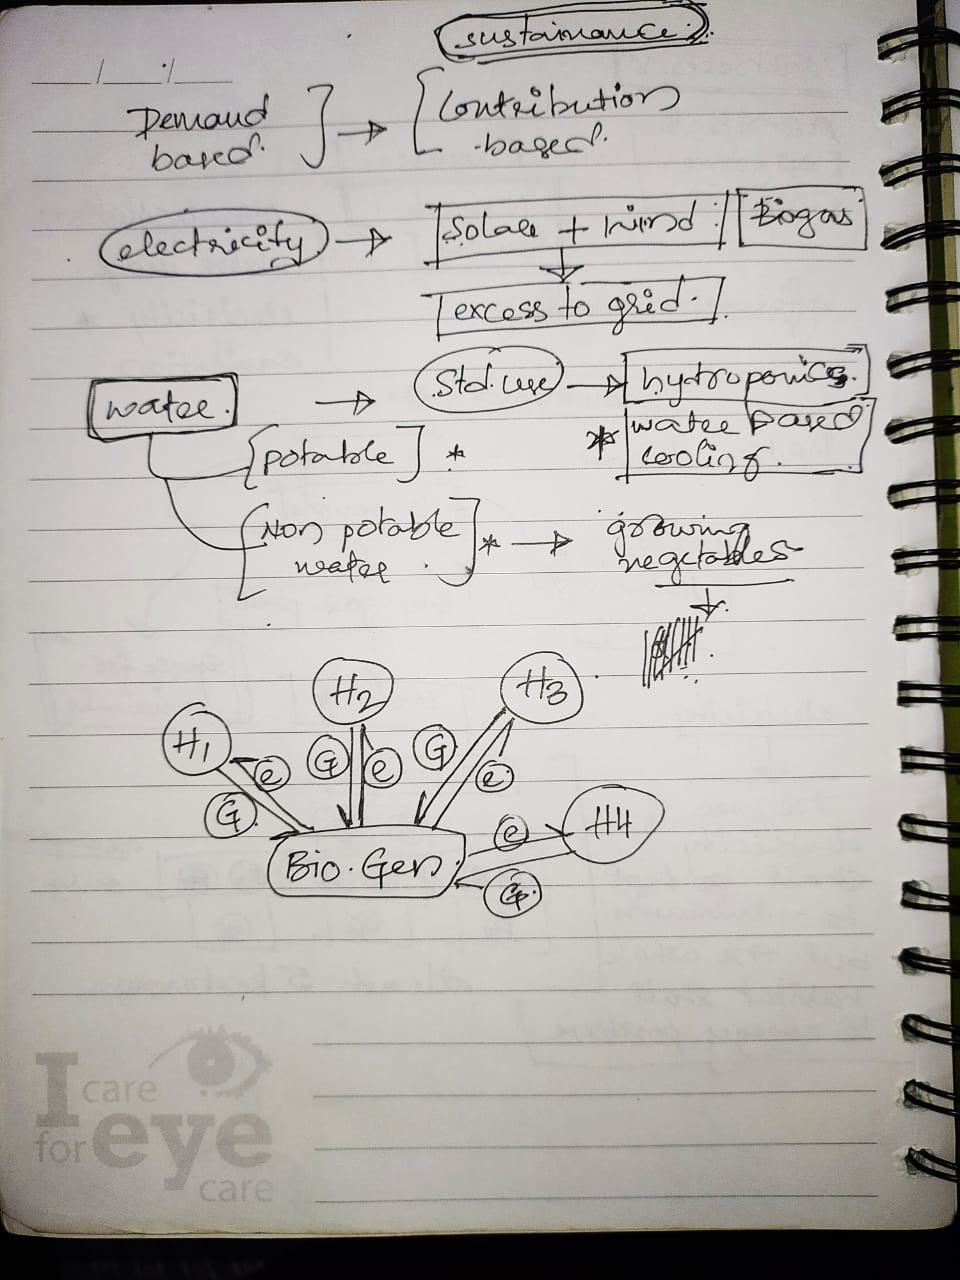 sustainance.
Demand based.
→ Contribution -based.
electricity → Solar + Wind / Biogas
excess to grid.
water. → Std. use → hydroponics.
[potable] * * water based cooling.
[Non potable water.] * → growing vegetables
H1 H2 H3
G e G e G e
H4
e
Bio. Gen.
G
I care
for eye
care